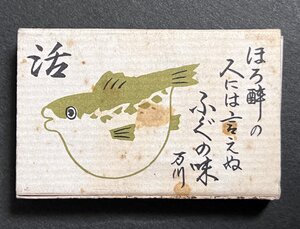 活
ほろ酔の
人には言えぬ
ふぐの味
万川